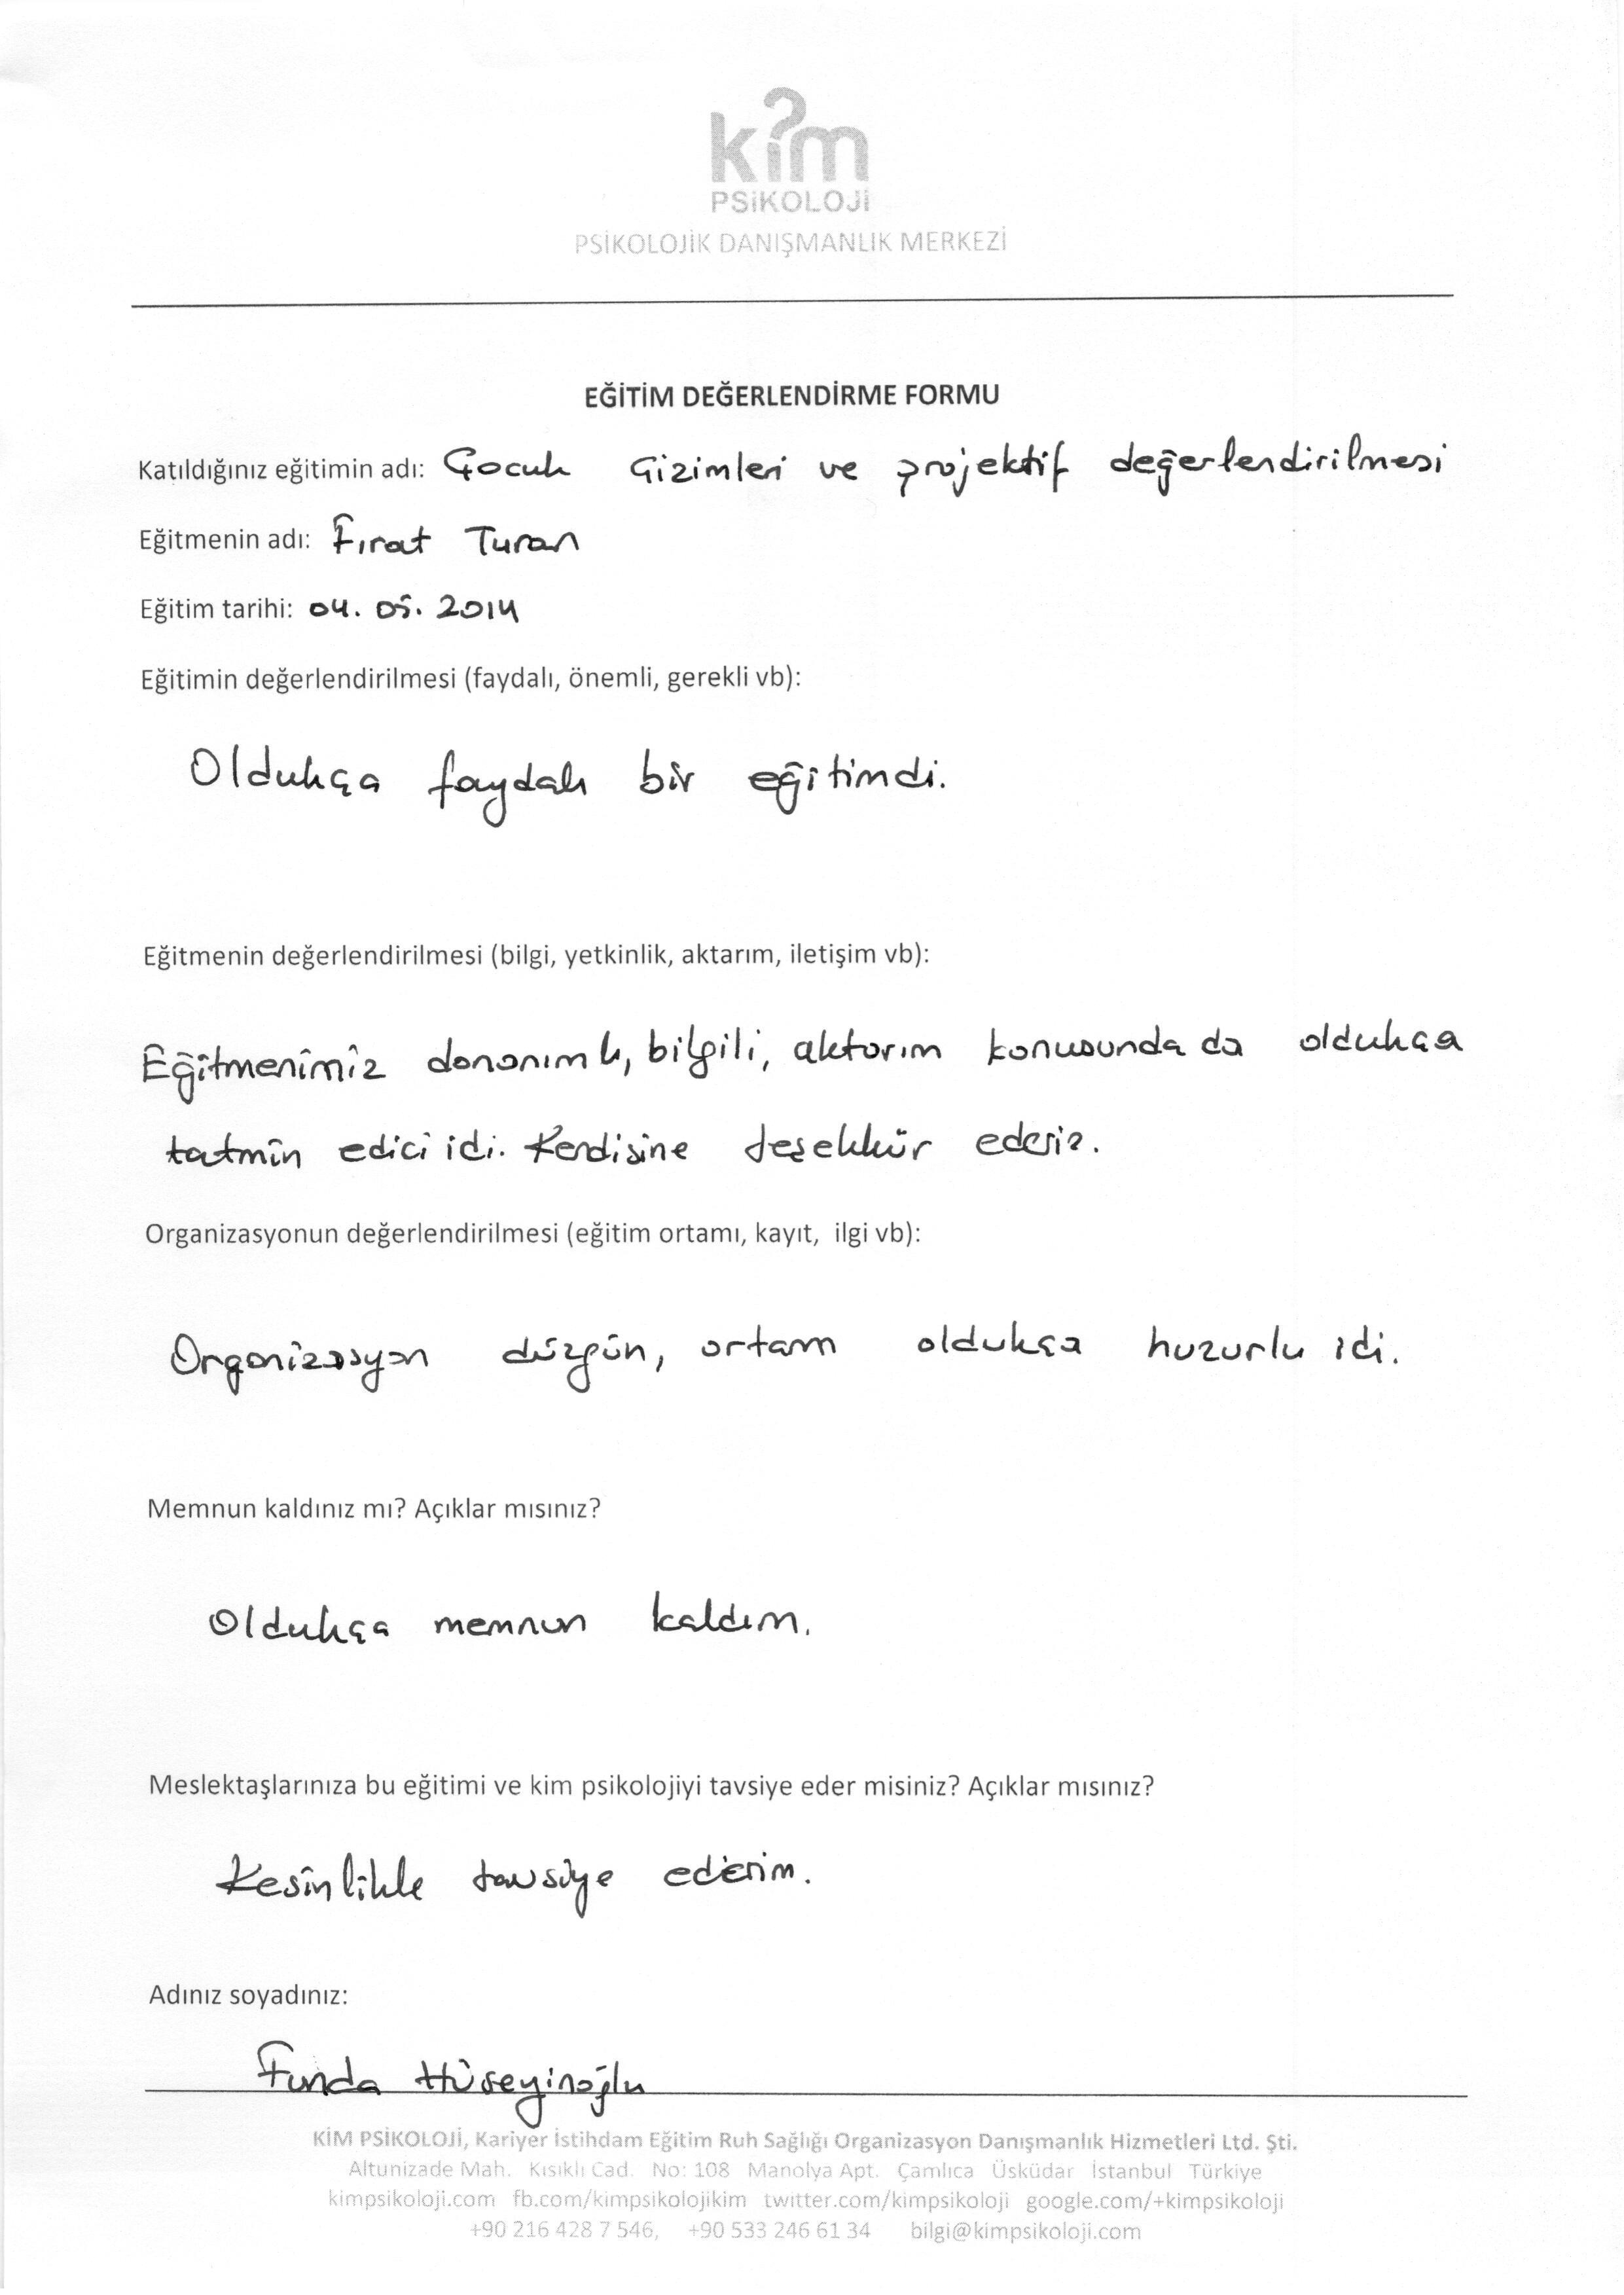 kim
PSiKOLOJi
PSİKOLOJİK DANIŞMANLIK MERKEZİ
EĞİTİM DEĞERLENDİRME FORMU
Katıldığınız eğitimin adı: Çocuk Çizimleri ve projektif değerlendirilmesi
Eğitmenin adı: Fırat Turan
Eğitim tarihi: 04. 05. 2014
Eğitimin değerlendirilmesi (faydalı, önemli, gerekli vb):
Oldukça faydalı bir eğitimdi.
Eğitmenin değerlendirilmesi (bilgi, yetkinlik, aktarım, iletişim vb):
Eğitmenimiz donanımlı, bilgili, aktarım konusunda da oldukça
tatmin edici idi. Kendisine teşekkür ederiz.
Organizasyonun değerlendirilmesi (eğitim ortamı, kayıt, ilgi vb):
Organizasyon düzgün, ortam oldukça huzurlu idi.
Memnun kaldınız mı? Açıklar mısınız?
Oldukça memnun kaldım.
Meslektaşlarınıza bu eğitimi ve kim psikolojiyi tavsiye eder misiniz? Açıklar mısınız?
Kesinlikle tavsiye ederim.
Adınız soyadınız:
Funda Hüseyinoğlu
KİM PSİKOLOJİ, Kariyer İstihdam Eğitim Ruh Sağlığı Organizasyon Danışmanlık Hizmetleri Ltd. Şti.
Altunizade Mah. Kısıklı Cad. No: 108 Manolya Apt. Çamlıca Üsküdar İstanbul Türkiye
kimpsikoloji.com fb.com/kimpsikolojikim twitter.com/kimpsikoloji google.com/+kimpsikoloji
+90 216 428 7 546, +90 533 246 61 34 bilgi@kimpsikoloji.com